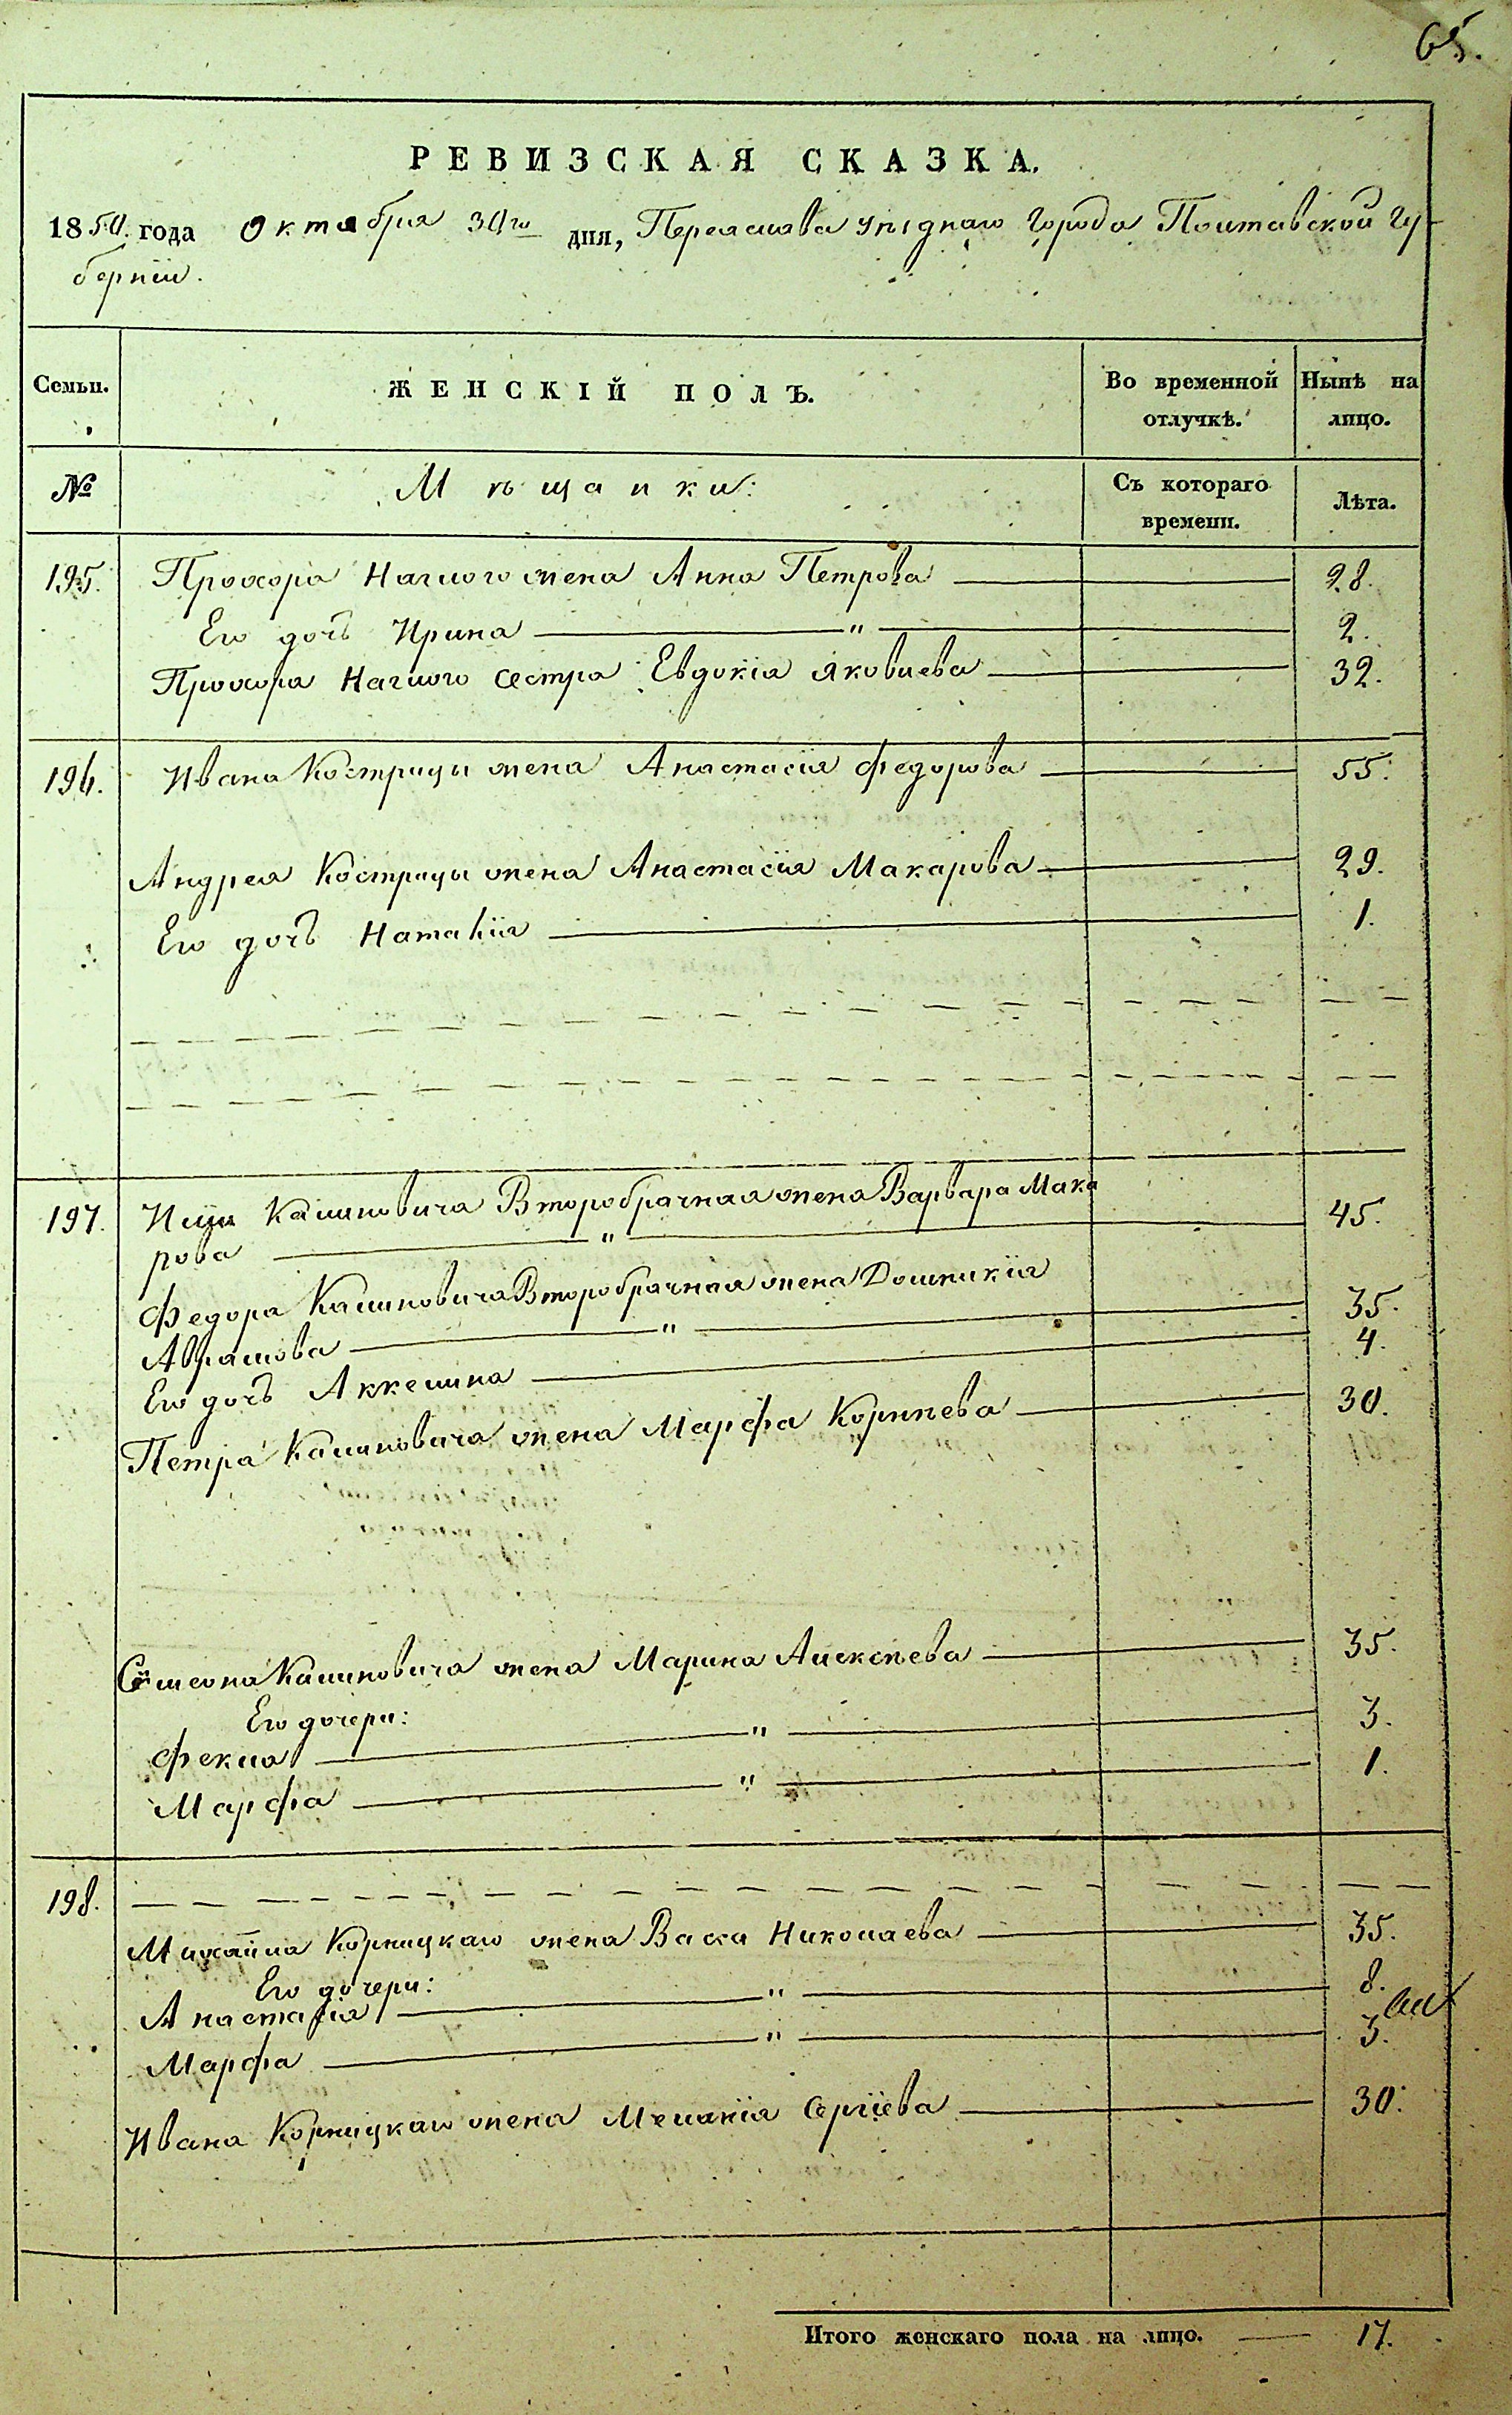 65.
РЕВИЗСКАЯ СКАЗКА.
1850. года Октября 30го дня, Переяслава уѣзднаго города Полтавской Гу-
берніи.
Семьи. ЖЕНСКІЙ ПОЛЪ. Во временной отлучкѣ. Нынѣ на лицо.
№ Мѣщанки: Съ котораго времени. Лѣта.
195. Прохора Наглого жена Анна Петрова 28.
Его дочь Ирина " 2.
Прохора Наглого сестра Евдокія Яковлева 32.
196. Ивана Кострицы жена Анастасія Федорова 55.
Андрея Кострицы жена Анастасія Макарова 29.
Его дочь Наталія 1.
197. Калиновича Второбрачная жена Варвара Мака
рова " 45.
Федора Калиновича Второбрачная жена Домникія
Абрамова " 35.
Его дочь Аккелина 4.
Петра Калиновича жена Марфа Корнѣева 30.
Семеона Калиновича жена Марина Алексѣева 35.
Его дочери:
Фекла " 3.
Марфа " 1.
198.
Михайла Корницкаго жена Васса Николаева 35.
Его дочери:
Анастасія " 8.
Марфа " 3.
Ивана Корницкаго жена Меланія Сергіева 30.
Итого женскаго пола на лицо. 17.